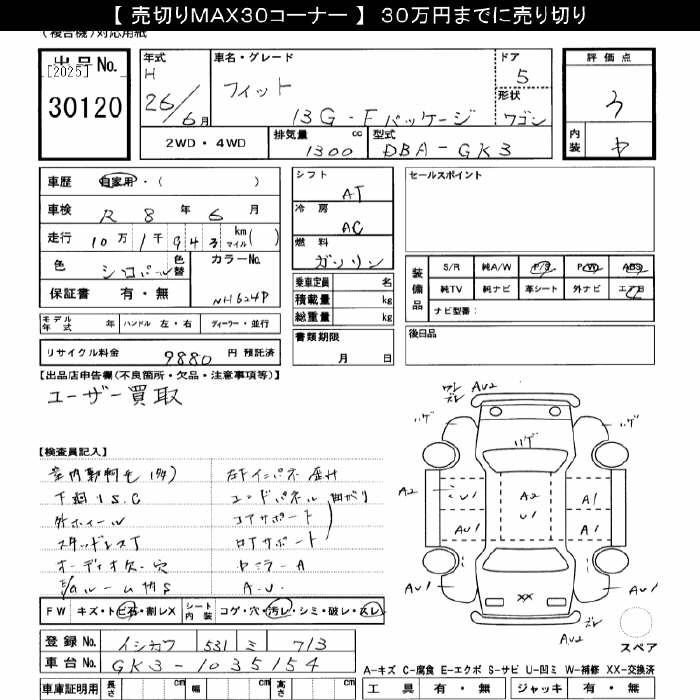 【 売切りMAX30コーナー 】 30万円までに売り切り
(複合機)対応用紙
出品No.
[2025]
30120
年式
H
26/6月
車名・グレード
フィット
13G・Fパッケージ
ドア
5
形状
ワゴン
2WD・4WD
排気量
1300 cc
型式
DBA-GK3
評価点
3
内装
車歴 自家用・( )
車検 R 8 年 6 月
走行 10万1千943 km マイル( )
色 シロパール 色替
カラーNo.
NH624P
保証書 有・無
モデル年式 年 ハンドル 左・右 ディーラー・並行
リサイクル料金 9880 円 預託済
シフト
AT
冷房
AC
燃料
ガソリン
乗車定員 名
積載量 kg
総重量 kg
書類期限
月 日
セールスポイント
装備品
S/R 純A/W P/S P/W ABS
純TV 純ナビ 革シート 外ナビ エアB
ナビ型番：
後日品
【出品店申告欄(不良箇所・欠品・注意事項等)】
ユーザー買取
【検査員記入】
下廻りS.C
外ホイール
スタッドレスT
オーディオ欠・穴
左下インパネ歪み
エンドパネル 曲がり
コアサポート
ロアサポート
A.U.
ワレ
ズレ
AU2
ハゲ
ハゲ
ハゲ
A2
U1
A2
U1
A1
AU1
A1
AU1
AU1
XX
ズレ
AU2
スペア
FW キズ・トビ石・割レX シート内装 コゲ・穴・汚レ・シミ・破レ・スレ
登録No. イシカワ 531 ミ 713
車台No. GK3-1035154
車庫証明用 長さ cm 幅 cm 高さ cm
A-キズ C-腐食 E-エクボ S-サビ U-凹ミ W-補修 XX-交換済
工具 有・無 ジャッキ 有・無